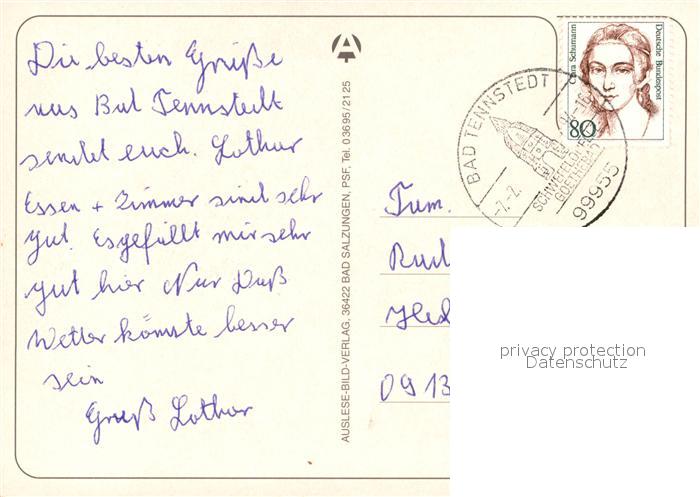 Die besten Grüße
aus Bad Tennstedt
sendet euch. Lothar
Essen + Zimmer sind sehr
gut. Es gefällt mir sehr
gut hier Nur Daß
Wetter könnte besser
sein
Gruß Lothar
AUSLESE-BILD-VERLAG, 36422 BAD SALZUNGEN, PSF, Tel. 03695/2125
Clara Schumann
Deutsche Bundespost
80
BAD TENNSTEDT
SCHWEFELQUELLE
GOETHEBAD
99955
Fam.
Rud
Hed
09 13
privacy protection
Datenschutz